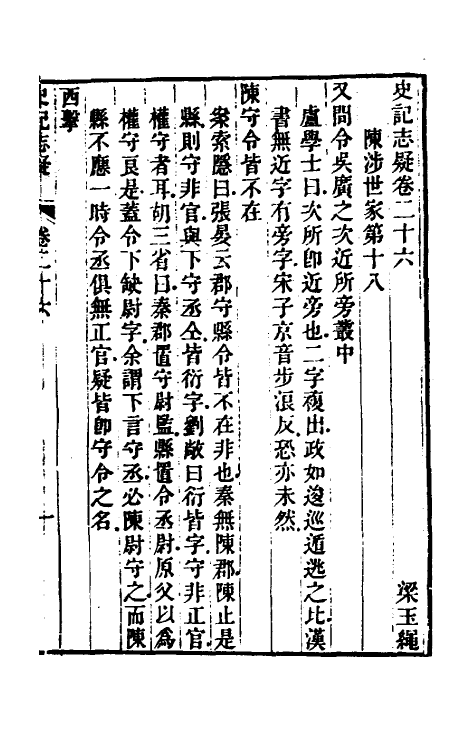 史記志疑卷二十六
梁玉繩
陳涉世家第十八
又間令吳廣之次近所旁叢中
盧學士曰次所即近旁也二字複出政如逡巡遁逃之比漢
書無近字有旁字宋子京音步浪反恐亦未然
陳守令皆不在
案索隱曰張晏云郡守縣令皆不在非也秦無陳郡陳止是
縣則守非官與下守丞仝皆衍字劉敞曰衍皆字守非正官
權守者耳胡三省曰秦郡置守尉監縣置令丞尉原父以為
權守良是蓋令下缺尉字余謂下言守丞必陳尉守之而陳
縣不應一時令丞俱無正官疑皆即守令之名
西擊
史記志疑 卷二十六 一